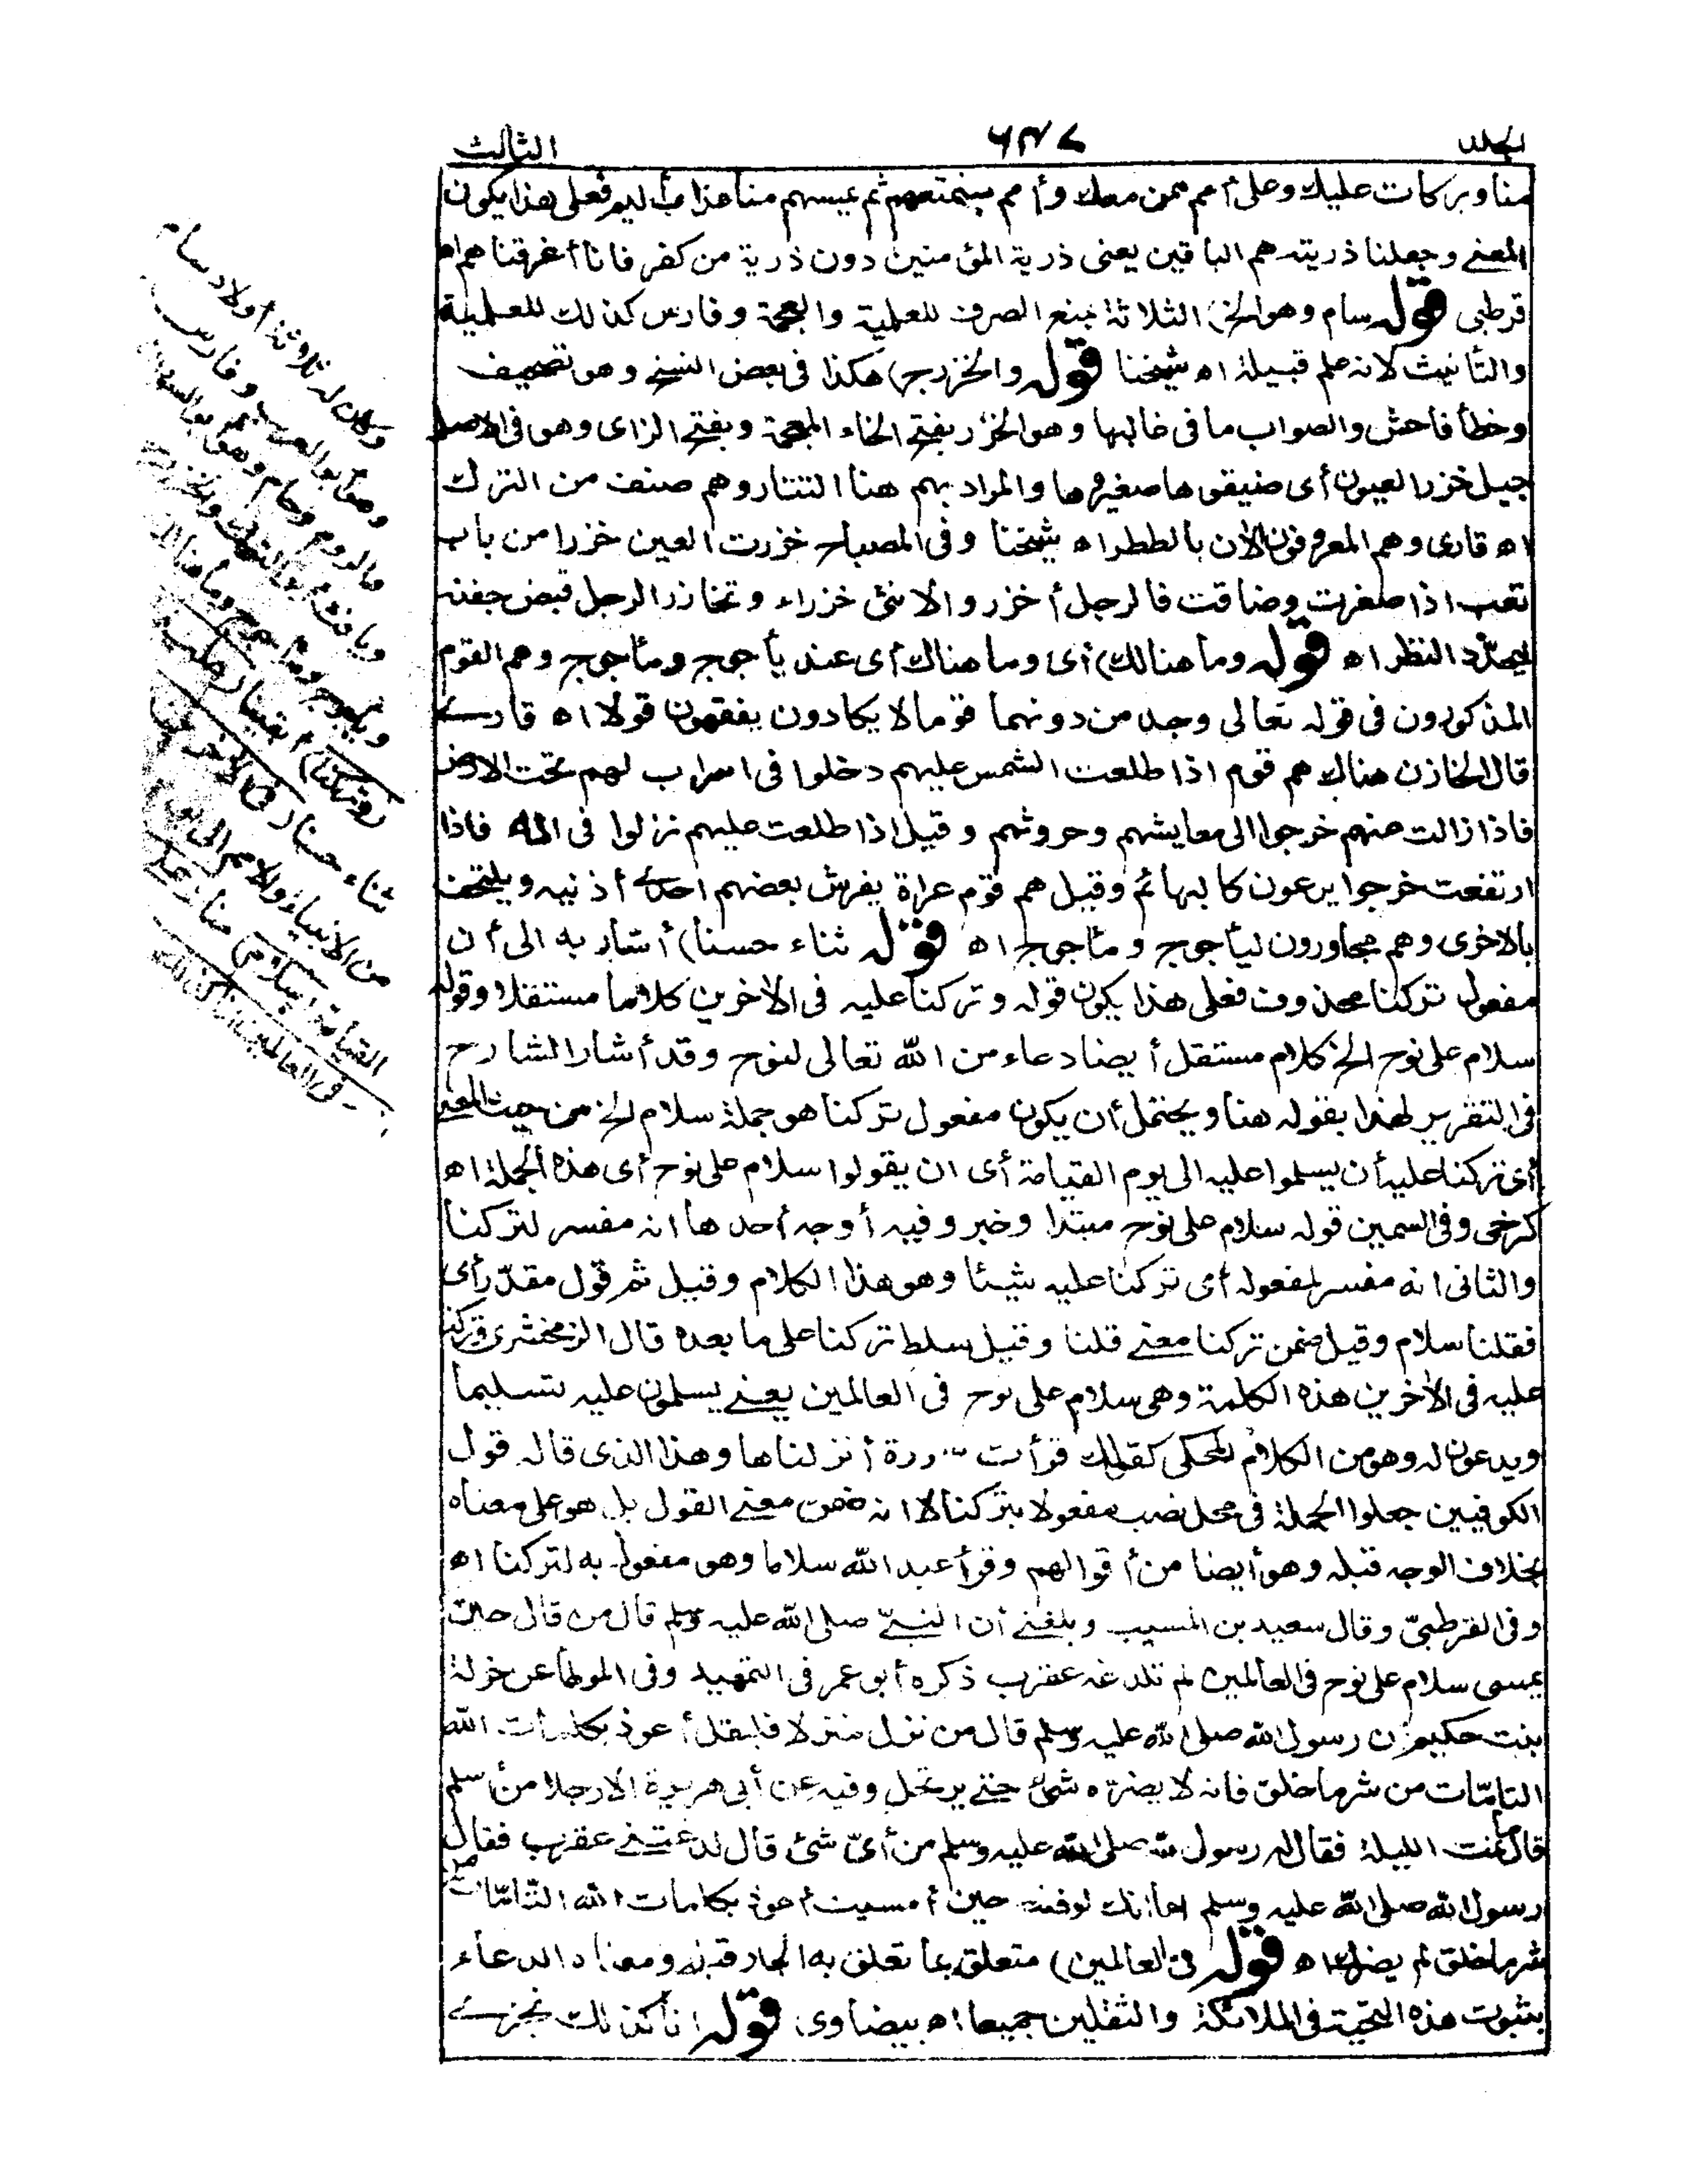 المجلد ٦٣٧ الثالث
منا وبركات عليك وعلى أمم ممن معك وأمم سنمتعهم ثم يمسهم منا عذاب أليم فعلى هذا يكون
المعنى وجعلنا ذريته هم الباقين يعنى ذرية المؤمنين دون ذرية من كفر فانا أغرقناهم اه
قرطبى قوله سام وهو الخ) الثلاثة بمنع الصرف للعلمية والعجمة وفارس كذلك للعلمية
والتأنيث لانه علم قبيلة اه شيخنا قوله والخزرج) هكذا فى بعض النسخ وهو تصحيف
وخطأ فاحش والصواب ما فى غالبها وهو الخزر بفتح الخاء المعجمة وبفتح الزاى وهو فى الاصل
جيل خزر العيون أى ضيقوها صغيروها والمراد بهم هنا التتار وهم صنف من الترك
اه قارى وهم المعروفون الآن بالططر اه شيخنا وفى المصباح خزرت العين خزرا من باب
تعب اذا صغرت وضاقت فالرجل أخزر والانثى خزراء وتخازر الرجل قبض جفنه
ليحدّد النظر اه قوله وما هنالك) أى وما هناك أى عند يأجوج ومأجوج وهم القوم
المذكورون فى قوله تعالى وجد من دونهما قوما لا يكادون يفقهون قولا اه قارى
قال الخازن هناك هم قوم اذا طلعت الشمس عليهم دخلوا فى اسراب لهم تحت الارض
فاذا زالت عنهم خرجوا الى معايشهم وحروثهم وقيل اذا طلعت عليهم نزلوا فى الماء فاذا
ارتفعت خرجوا يرعون كالبهائم وقيل هم قوم عراة يفرش بعضهم احدى أذنيه ويلتحف
بالاخرى وهم مجاورون ليأجوج ومأجوج اه قوله ثناء حسنا) أشار به الى أن
مفعول تركنا محذوف فعلى هذا يكون قوله وتركنا عليه فى الآخرين كلاما مستقلا وقوله
سلام على نوح الخ كلام مستقل أيضا دعاء من الله تعالى لنوح وقد أشار الشارح
فى التقرير لهذا بقوله هنا ويحتمل أن يكون مفعول تركنا هو جملة سلام الخ من حيث المعنى
أى تركنا عليه أن يسلموا عليه الى يوم القيامة أى ان يقولوا سلام على نوح أى هذه الجملة اه
كرخى وفى السمين قوله سلام على نوح مبتدا وخبر وفيه أوجه أحدها انه مفسر لتركنا
والثانى انه مفسر لمفعوله أى تركنا عليه شيئا وهو هذا الكلام وقيل ثم قول مقدّر أى
فقلنا سلام وقيل ضمن تركنا معنى قلنا وقيل سلط تركنا على ما بعده قال الزمخشرى وتركنا
عليه فى الآخرين هذه الكلمة وهى سلام على نوح فى العالمين يعنى يسلمون عليه تسليما
ويدعون له وهو من الكلام المحكى كقولك قرأت سورة أنزلناها وهذا الذى قاله قول
الكوفيين جعلوا الجملة فى محل نصب مفعولا بتركنا لا انه ضمن معنى القول بل هو على معناه
بخلاف الوجه قبله وهو أيضا من أقوالهم وقرأ عبد الله سلاما وهو مفعول به لتركنا اه
وفى القرطبىّ وقال سعيد بن المسيب وبلغنى أن النبىّ صلى الله عليه وسلم قال من قال حين
يمسى سلام على نوح فى العالمين لم تلدغه عقرب ذكره أبو عمر فى التمهيد وفى الموطأ عن خولة
بنت حكيم أن رسول الله صلى الله عليه وسلم قال من نزل منزلا فليقل أعوذ بكلمات الله
التامّات من شر ما خلق فانه لا يضرّه شئ حتى يرتحل وفيه عن أبى هريرة ان رجلا من أسلم
قال ما نمت الليلة فقال له رسول الله صلى الله عليه وسلم من أىّ شئ قال لدغتنى عقرب فقال
رسول الله صلى الله عليه وسلم اما انك لو قلت حين أمسيت أعوذ بكلمات الله التامّات من
شر ما خلق لم يضرك اه قوله فى العالمين) متعلق بما تعلق به الجار قبله ومعناه الدعاء
بثبوت هذه التحية فى الملائكة والثقلين جميعا اه بيضاوى قوله انا كذلك نجزى
وكان له ثلاثة أولاد سام
وهو أبو العرب وفارس
والروم وحام وهو أبو السودان
ويافث أبو الترك والخزر
ويأجوج ومأجوج وما هنالك
(وتركنا) أبقينا (عليه)
ثناء حسنا (فى الآخرين)
من الانبياء والامم الى يوم
القيامة (سلام) منا (على
فى العالمين انا كذلك